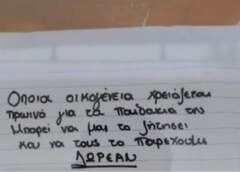 Οποια οικογένεια χρειάζεται
πρωινό για τα παιδάκια της
Μπορεί να μας το ζητήσει
και να τους το παρέχουμε
ΔΩΡΕΑΝ